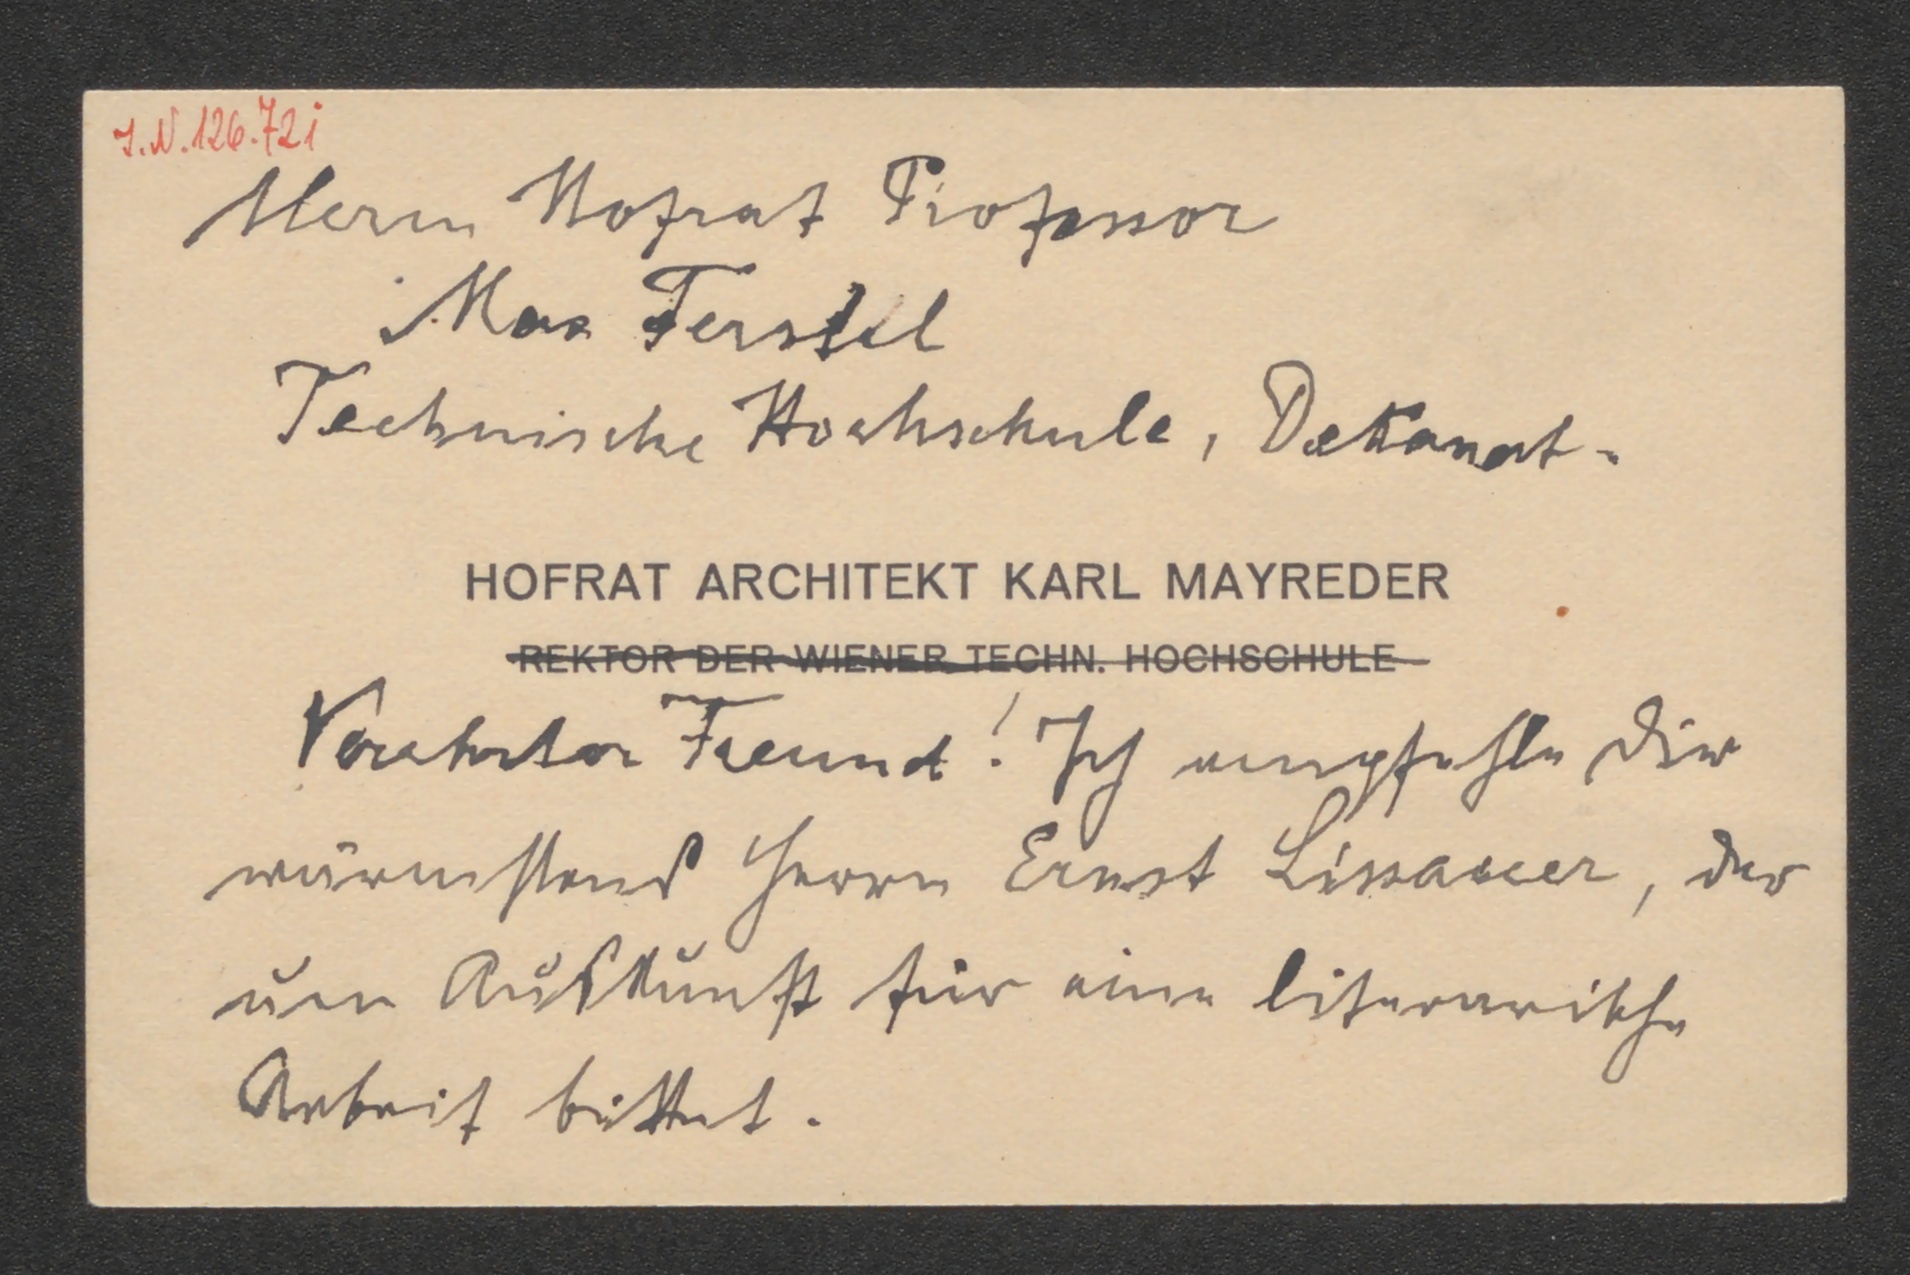 J.N. 126.721
Herrn Hofrat Professor
Max Ferstel
Technische Hochschule, Dekanat.
HOFRAT ARCHITEKT KARL MAYREDER
REKTOR DER WIENER TECHN. HOCHSCHULE
Verehrter Freund! Ich empfehle Dir
wärmstens Herrn Ernst Lissauer, der
um Auskunft für eine literarische
Arbeit bittet.